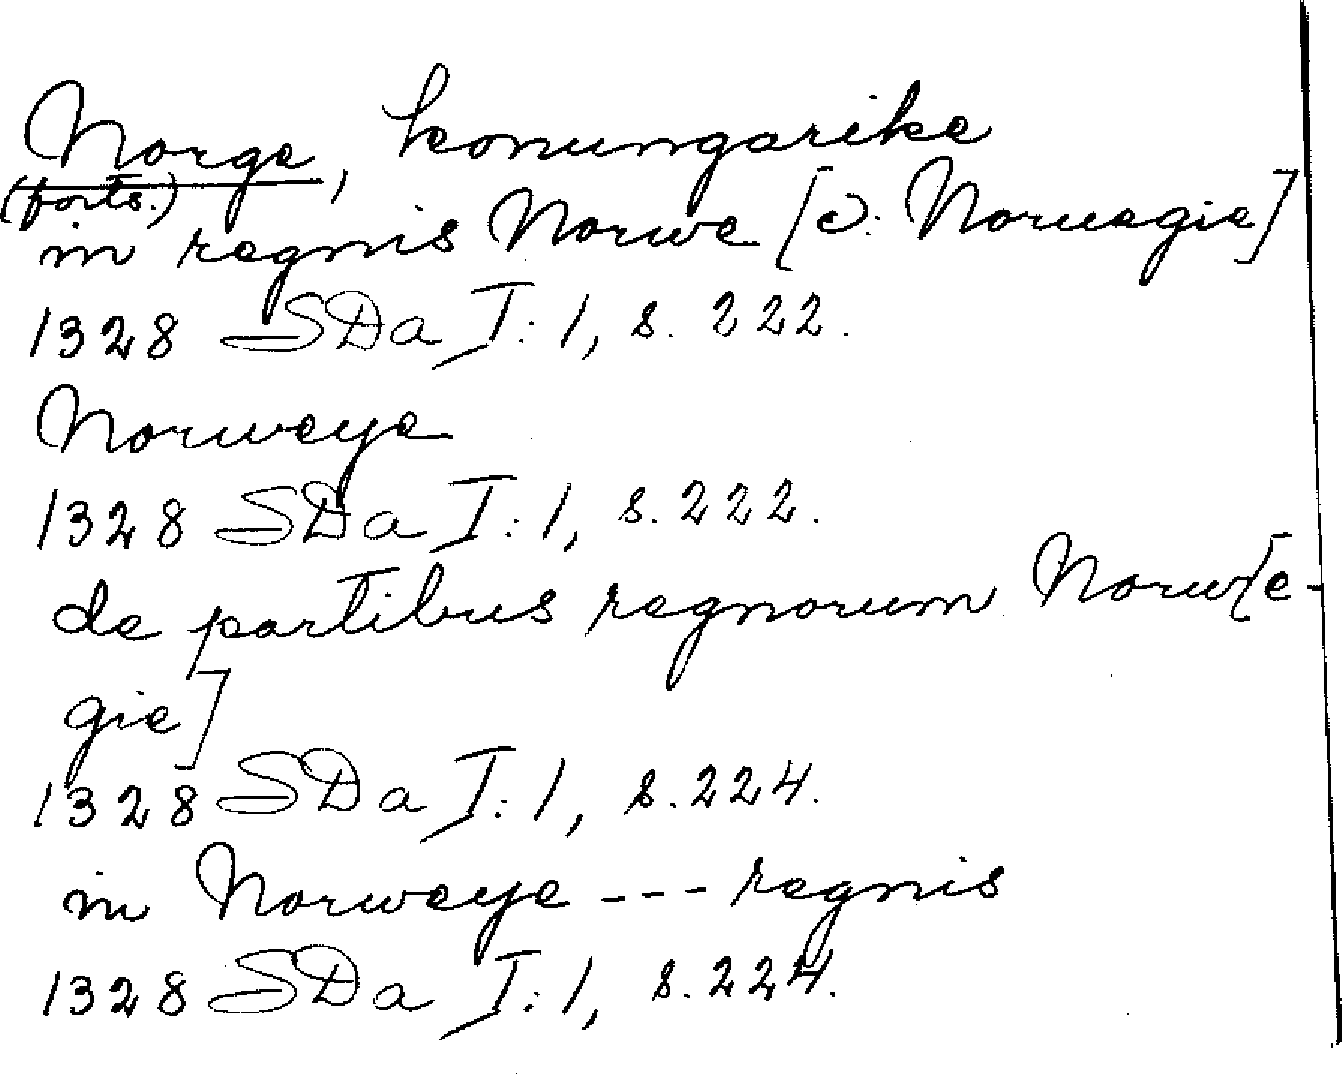 Norge, konungarike
(forts.)
in regnis Norwe [ɔ: Norwegie]
1328 SDa I:1, s. 222.
Norweye
1328 SDa I:1, s. 222.
de partibus regnorum Norw[e-
gie]
1328 SDa I:1, s. 224.
in Norweye --- regnis
1328 SDa I:1, s. 224.